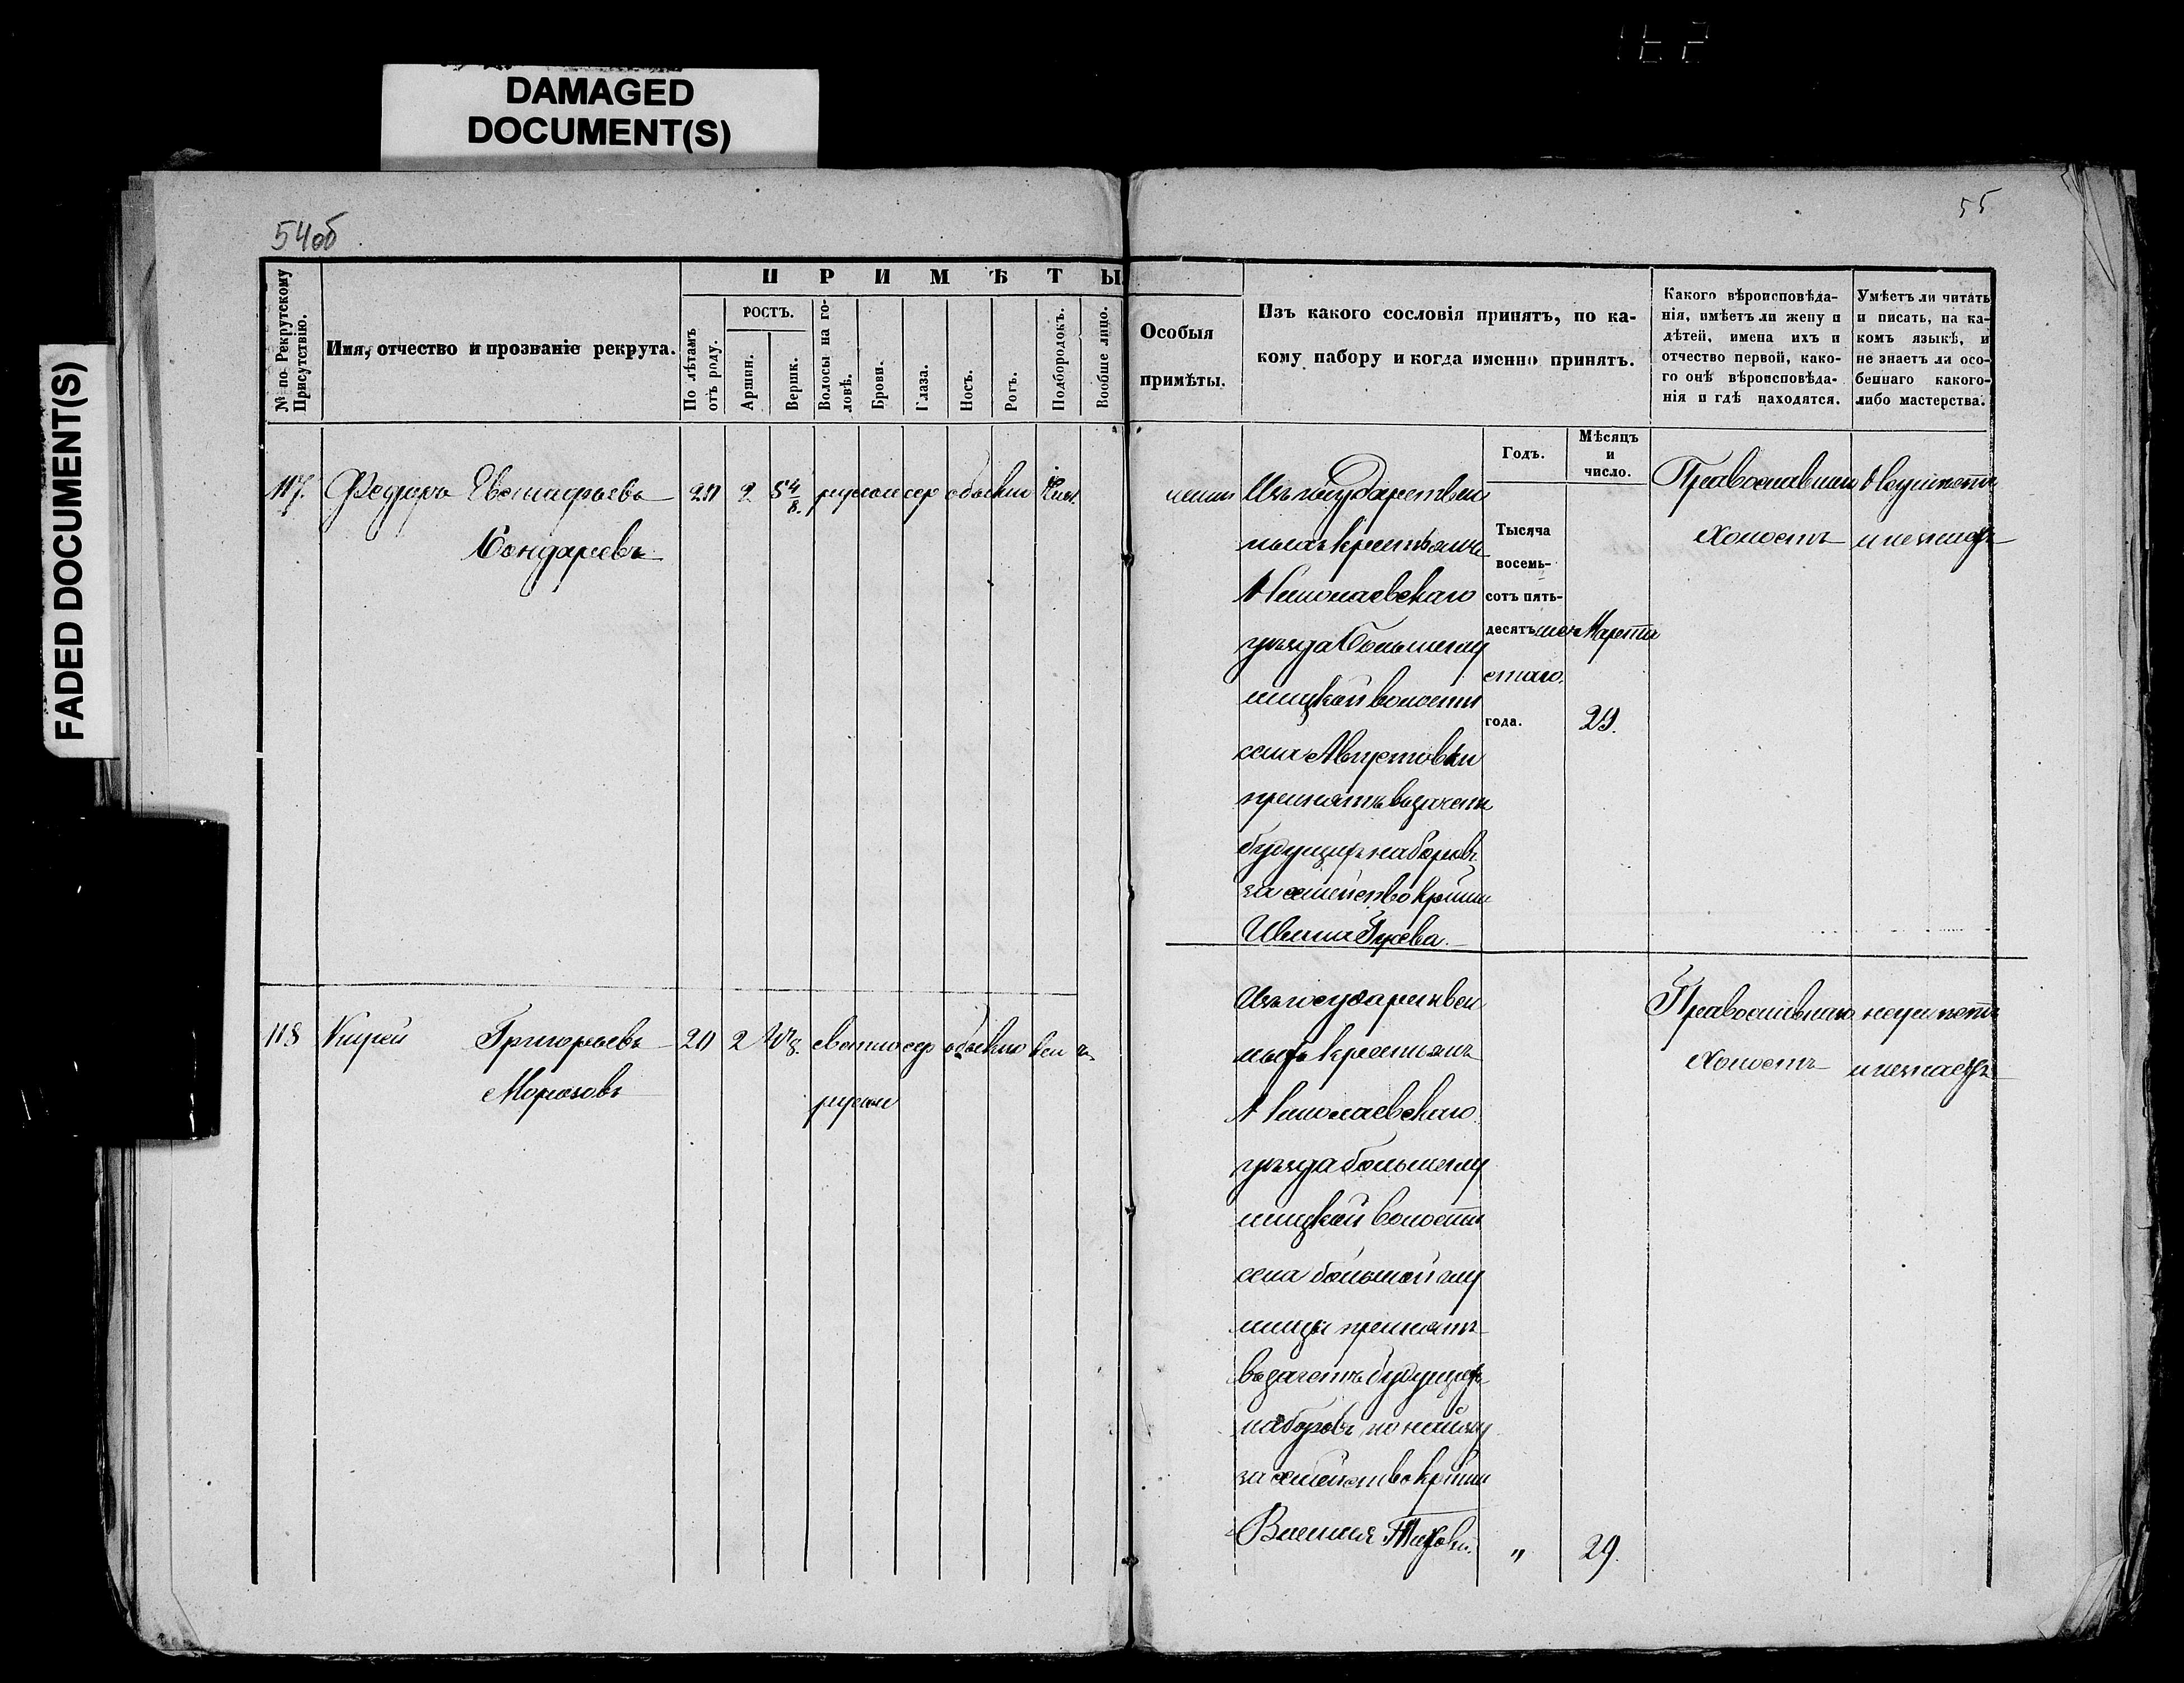 DAMAGED
DOCUMENT(S)
FADED DOCUMENT(S)
54об
55
№ по Рекрутскому Присутствію.
Имя, отчество и прозваніе рекрута.
ПРИМѢТЫ
По лѣтамъ отъ роду.
РОСТЪ.
Аршин.
Вершк.
Волосы на головѣ.
Брови.
Глаза.
Носъ.
Ротъ.
Подбородокъ.
Вообще лицо.
Особыя
примѣты.
Изъ какого сословія принятъ, по ка-
кому набору и когда именно принятъ.
Какого вѣроисповѣда-
нія, имѣетъ ли жену и
дѣтей, имена ихъ и
отчество первой, како-
го онѣ вѣроисповѣда-
нія и гдѣ находятся.
Умѣетъ ли читать
и писать, на ка-
комъ языкѣ, и
не знаетъ ли осо-
беннаго какого-
либо мастерства.
Годъ.
Мѣсяцъ
и
число.
117. Федоръ Евстафьевъ 20 2 5 4/8 русые сер обыкно
Бондаревъ
Изъ государствен
ныхъ крестьянъ
Николаевскаго
уѣзда Большеглу
шицкой волости
села Августовки
принятъ въ зачетъ
будущихъ наборовъ
за семейство крѣни
Ивана Гусева.
Тысяча
восемь-
сотъ пять-
десятъ шес
стаго.
года.
Марта
29.
Православнаго
Холостъ
Неумѣетъ
и незнаетъ
118 Кирей Григорьевъ 20 2 светло сер обыкно вен
Морозовъ
русые
Изъ государствен
ныхъ крестьянъ
Николаевскаго
уѣзда большеглу
шицкой волости
села большой глу
шицы принятъ
въ зачетъ будущихъ
наборовъ по найму
за семейство крѣни
„
29.
Православнаго
Холостъ
неумѣетъ
и незнаетъ